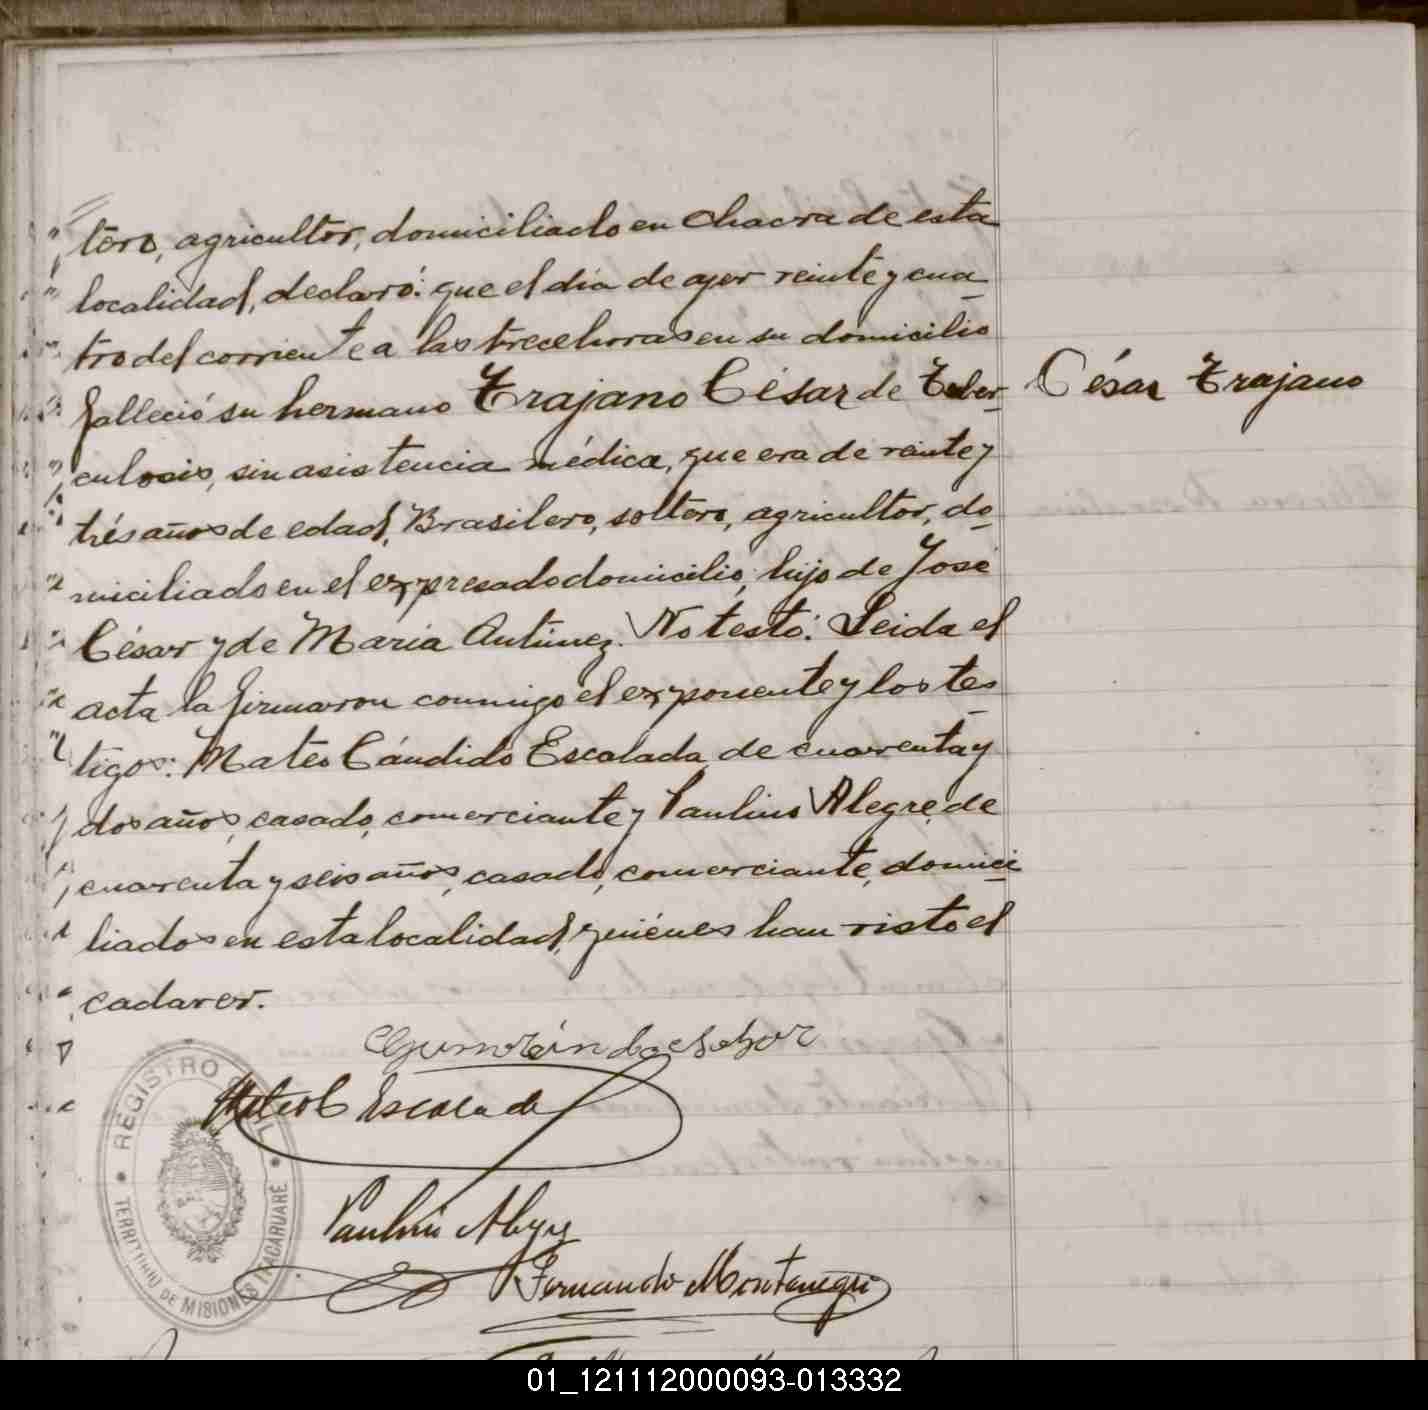 tero, agricultor, domiciliado en chacra de esta
localidad, declaró: que el día de ayer veinte y cua_
tro del corriente a las trece horas en su domicilio
falleció su hermano Trajano César de Tuber_
César Trajano
culosis, sin asistencia médica, que era de veinte y
trés años de edad, Brasilero, soltero, agricultor, do_
miciliado en el expresado domicilio, hijo de José
César y de María Antúnez. No testó: Leida el
acta la firmaron conmigo el exponente y los tes_
tigos: Mateo Cándido Escalada, de cuarenta y
dos años, casado, comerciante y Paulino Alegre, de
cuarenta y seis años, casado, comerciante, domici_
liados en esta localidad, quiénes han visto el
cadaver.
Mateo C Escalada
Paulino Alegre
Fernando Montenegro
REGISTRO CIVIL
TERRITORIO DE MISIONES ITACARUARÉ
01_121112000093-013332